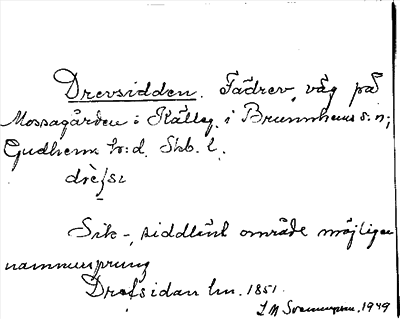 Drevsidden. Fädrev, väg på
Mossagården i Källeg. i Brunnhems s:n,
Gudhems h:d. Skb. l.
Sik-, siddlänt område möjligen
namnursprung
Drefsidan lm. 1851.
1949